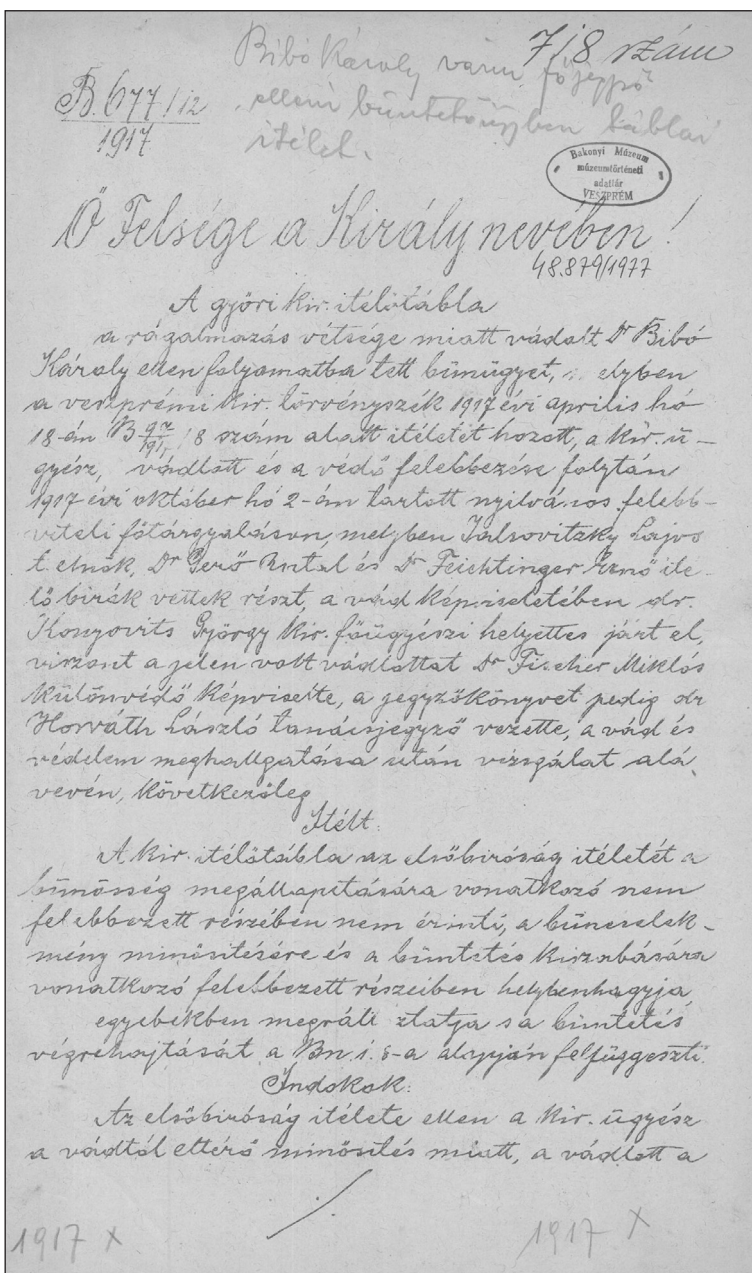 7/8 szám
Bibó Károly várm. főjegyző
elleni büntetőügyben táblai
itélet.
B. 677/12
1917
Bakonyi Múzeum
múzeumtörténeti
adattár
VESZPRÉM
Ő Felsége a Király nevében!
48.879/1977
A győri kir. itélőtábla
a rágalmazás vétsége miatt vádolt Dr Bibó
Károly ellen folyamatba tett bűnügyet, melyben
a veszprémi kir. törvényszék 1917 évi április hó
18-án B /8 szám alatt itéletet hozott, a kir. ü-
gyész, vádlott és a védő felebbezése folytán
1917 évi október hó 2-án tartott nyilvános felebb-
viteli főtárgyaláson, melyben Jalsovitzky Lajos
t. elnök, Dr Gerő Antal és Dr Feichtinger Ernő ité-
lő birák vettek részt, a vád képviseletében dr.
Konyovits György kir. főügyészi helyettes járt el,
viszont a jelen volt vádlottat Dr Fischer Miklós
különvédő képviselte, a jegyzőkönyvet pedig dr
Horváth László tanácsjegyző vezette, a vád és
védelem meghallgatása után vizsgálat alá
vevén, következőleg
Itélt:
A kir. itélőtábla az elsőbiróság itéletét a
bűnösség megállapitására vonatkozó nem
felebbezett részében nem érinti, a bűncselek-
mény minősitésére és a büntetés kiszabására
vonatkozó felebbezett részeiben helybenhagyja,
egyebekben megváltoztatja s a büntetés
végrehajtását a Bn. 1. §-a alapján felfüggeszti.
Indokok:
Az elsőbiróság itélete ellen a kir. ügyész
a vádtól eltérő minősités miatt, a vádlott a
./.
1917 X
1917 X